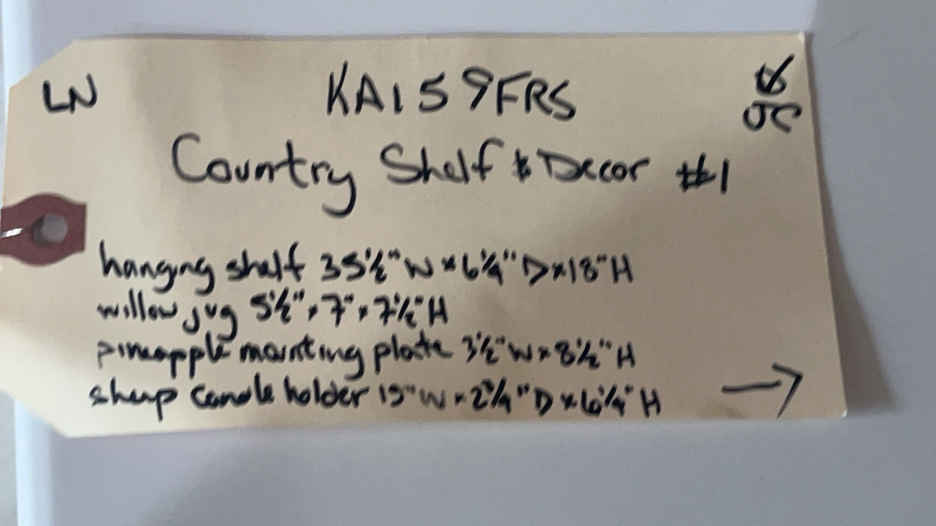 LN
KA159FRS
JC
Country Shelf & Decor #1
hanging shelf 35½" W × 6¼" D × 18" H
willow jug 5½" × 7" × 7½" H
pineapple mounting plate 3½" W × 8½" H
sheep candle holder 15" W × 2¾" D × 6¼" H
→